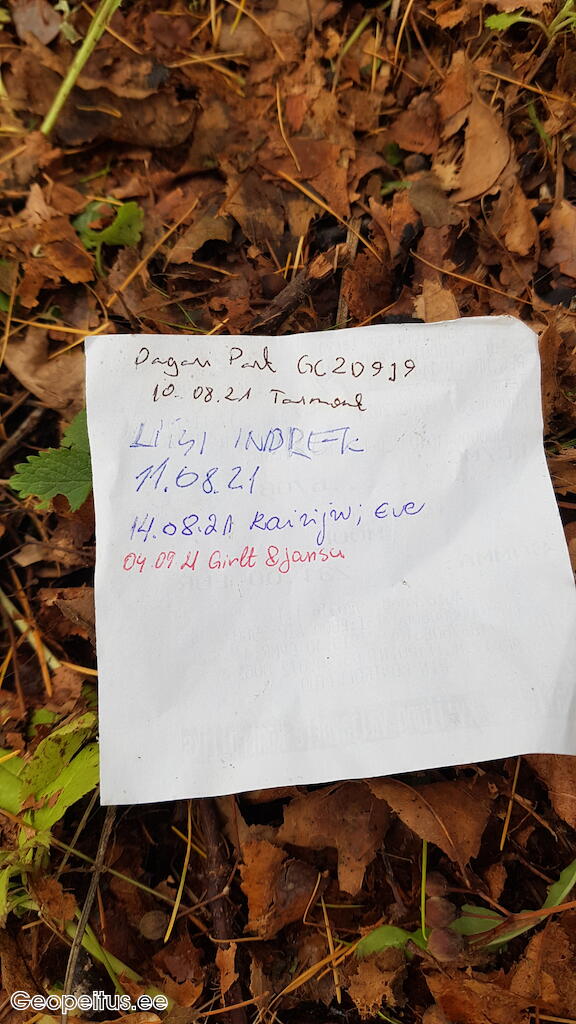 Pagari Park GC2D9J9
10.08.21 Tarmont
LIISI INDREK
11.08.21
14.08.21 Rainijw; Eve
04.09.21 Girlt & jansu
Geopeitus.ee